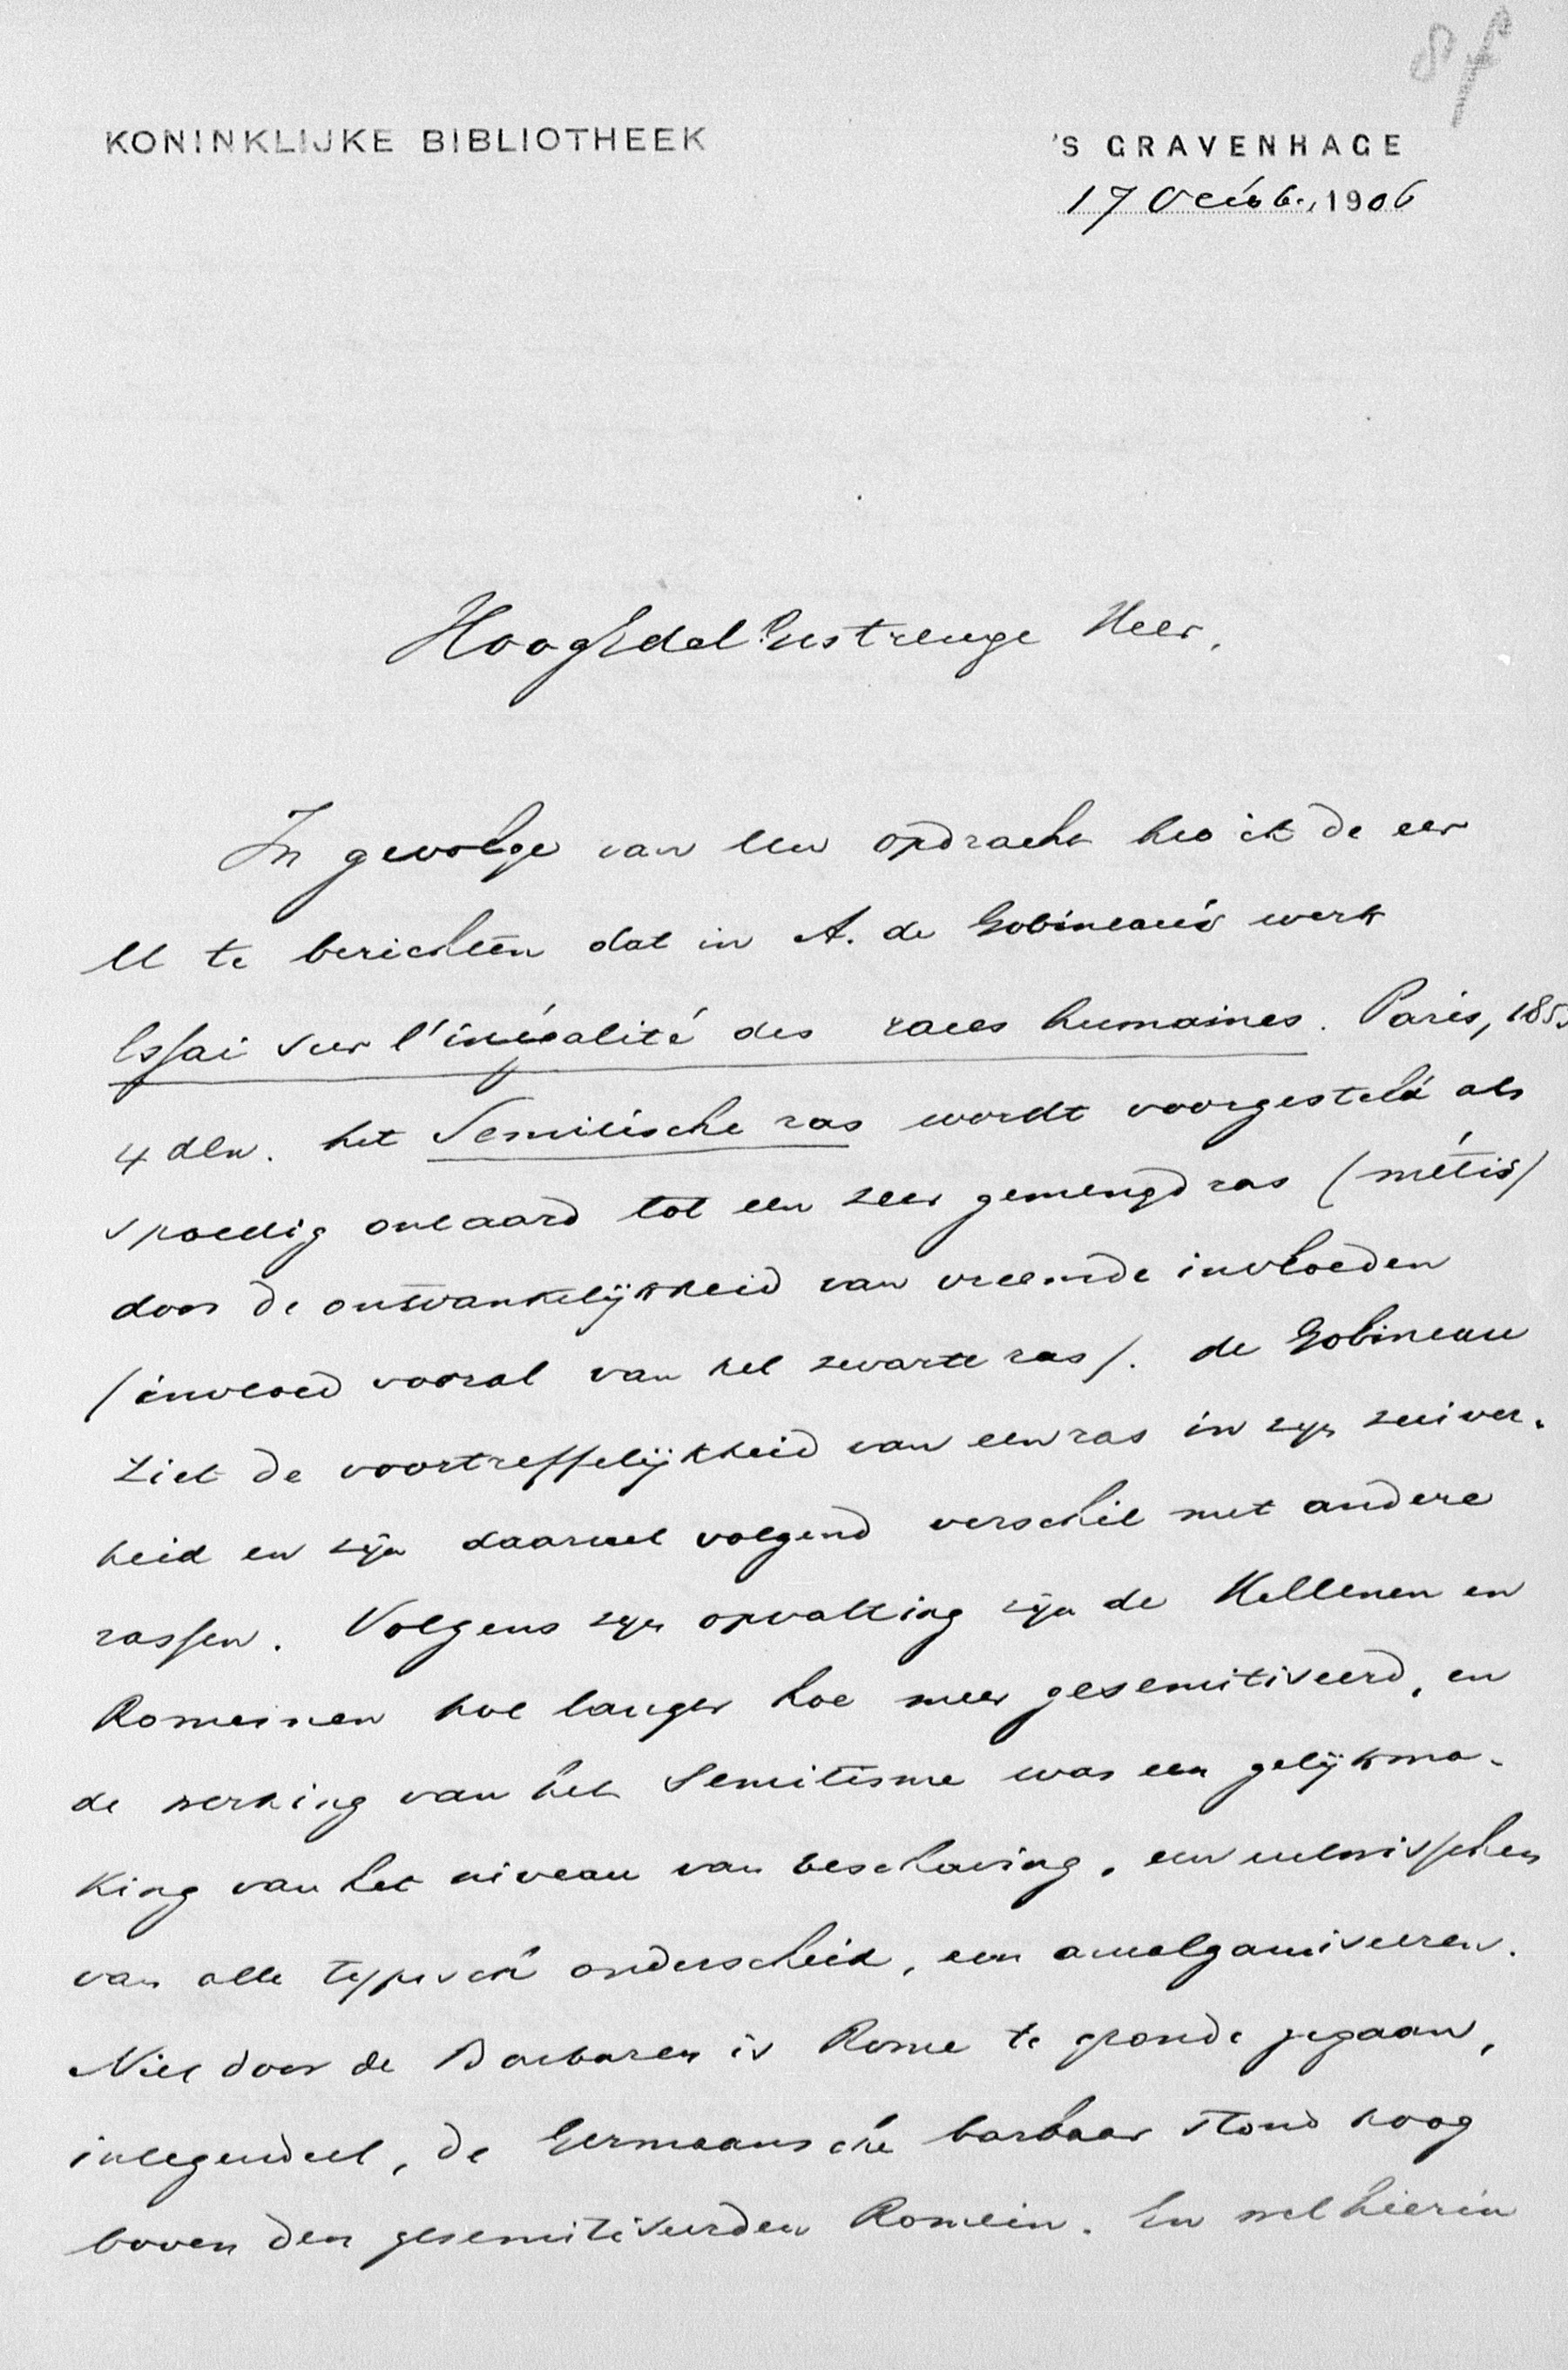 8f
KONINKLIJKE BIBLIOTHEEK
'S GRAVENHAGE
17 Octob., 1906
HoogEdelGestrenge Heer,
In gevolge van Uw opdracht heb ik de eer
U te berichten dat in A. de Gobineau's werk
Essai sur l'inégalité des races humaines. Paris, 185
4 dln. het Semitische ras wordt voorgesteld als
spoedig ontaard tot een zeer gemengd ras (métis)
door de ontvankelijkheid van vreemde invloeden
(invloed vooral van het zwarte ras). de Gobineau
ziet de voortreffelijkheid van een ras in zijn zuiver-
heid en zijn daaruit volgend verschil met andere
rassen. Volgens zijn opvatting zijn de Hellenen en
Romeinen hoe langer hoe meer gesemitiseerd, en
de werking van het Semitisme was een gelijkma-
king van het niveau van beschaving, een uitwisschen
van alle typisch onderscheid, een amalgamiseeren.
Niet door de Barbaren is Rome te gronde gegaan,
integendeel, de Germaansche barbaar stond hoog
boven den gesemitiseerden Romein. En wel hierin